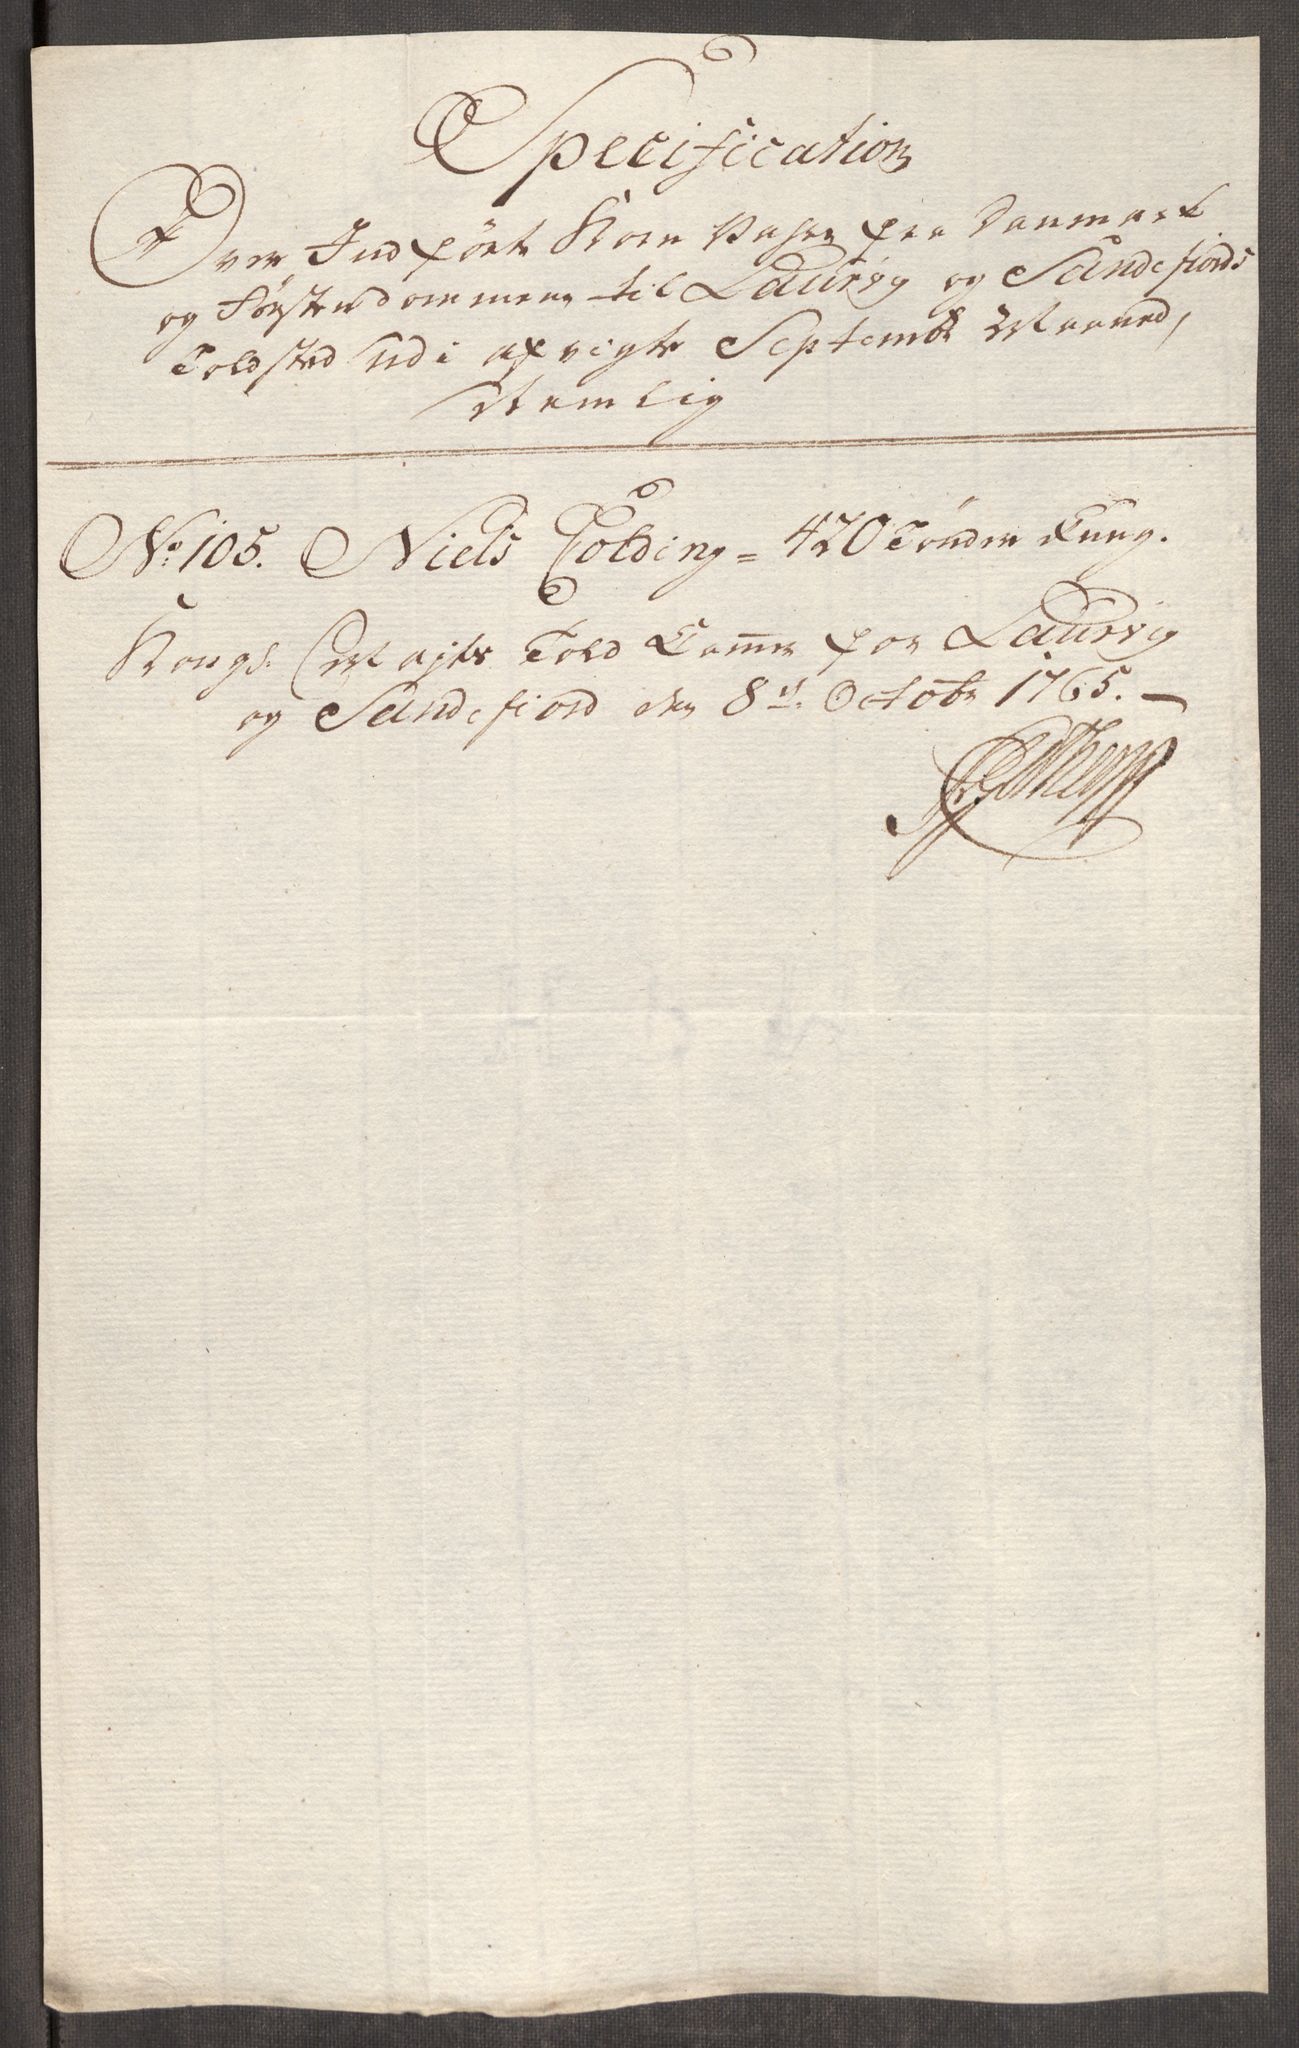 Specification
Over Indførte Korn Vahre fra Danmark
og Førstendommene til Laurvig og Sandefiords
Toldsted udi afvigte Septembr Maaned,
Nemlig
No: 105. Niels Colding = 420 Tønder Rug.
Kongl. Mayts Told Camer for Laurvig
og Sandefiord den 8de. Octobr 1765. —